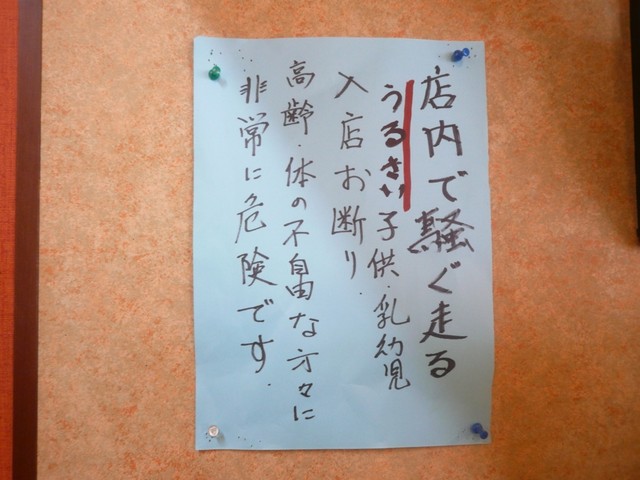 店内で騒ぐ走る
うるさい子供・乳幼児
入店お断り.
高齢・体の不自由な方々に
非常に危険です.